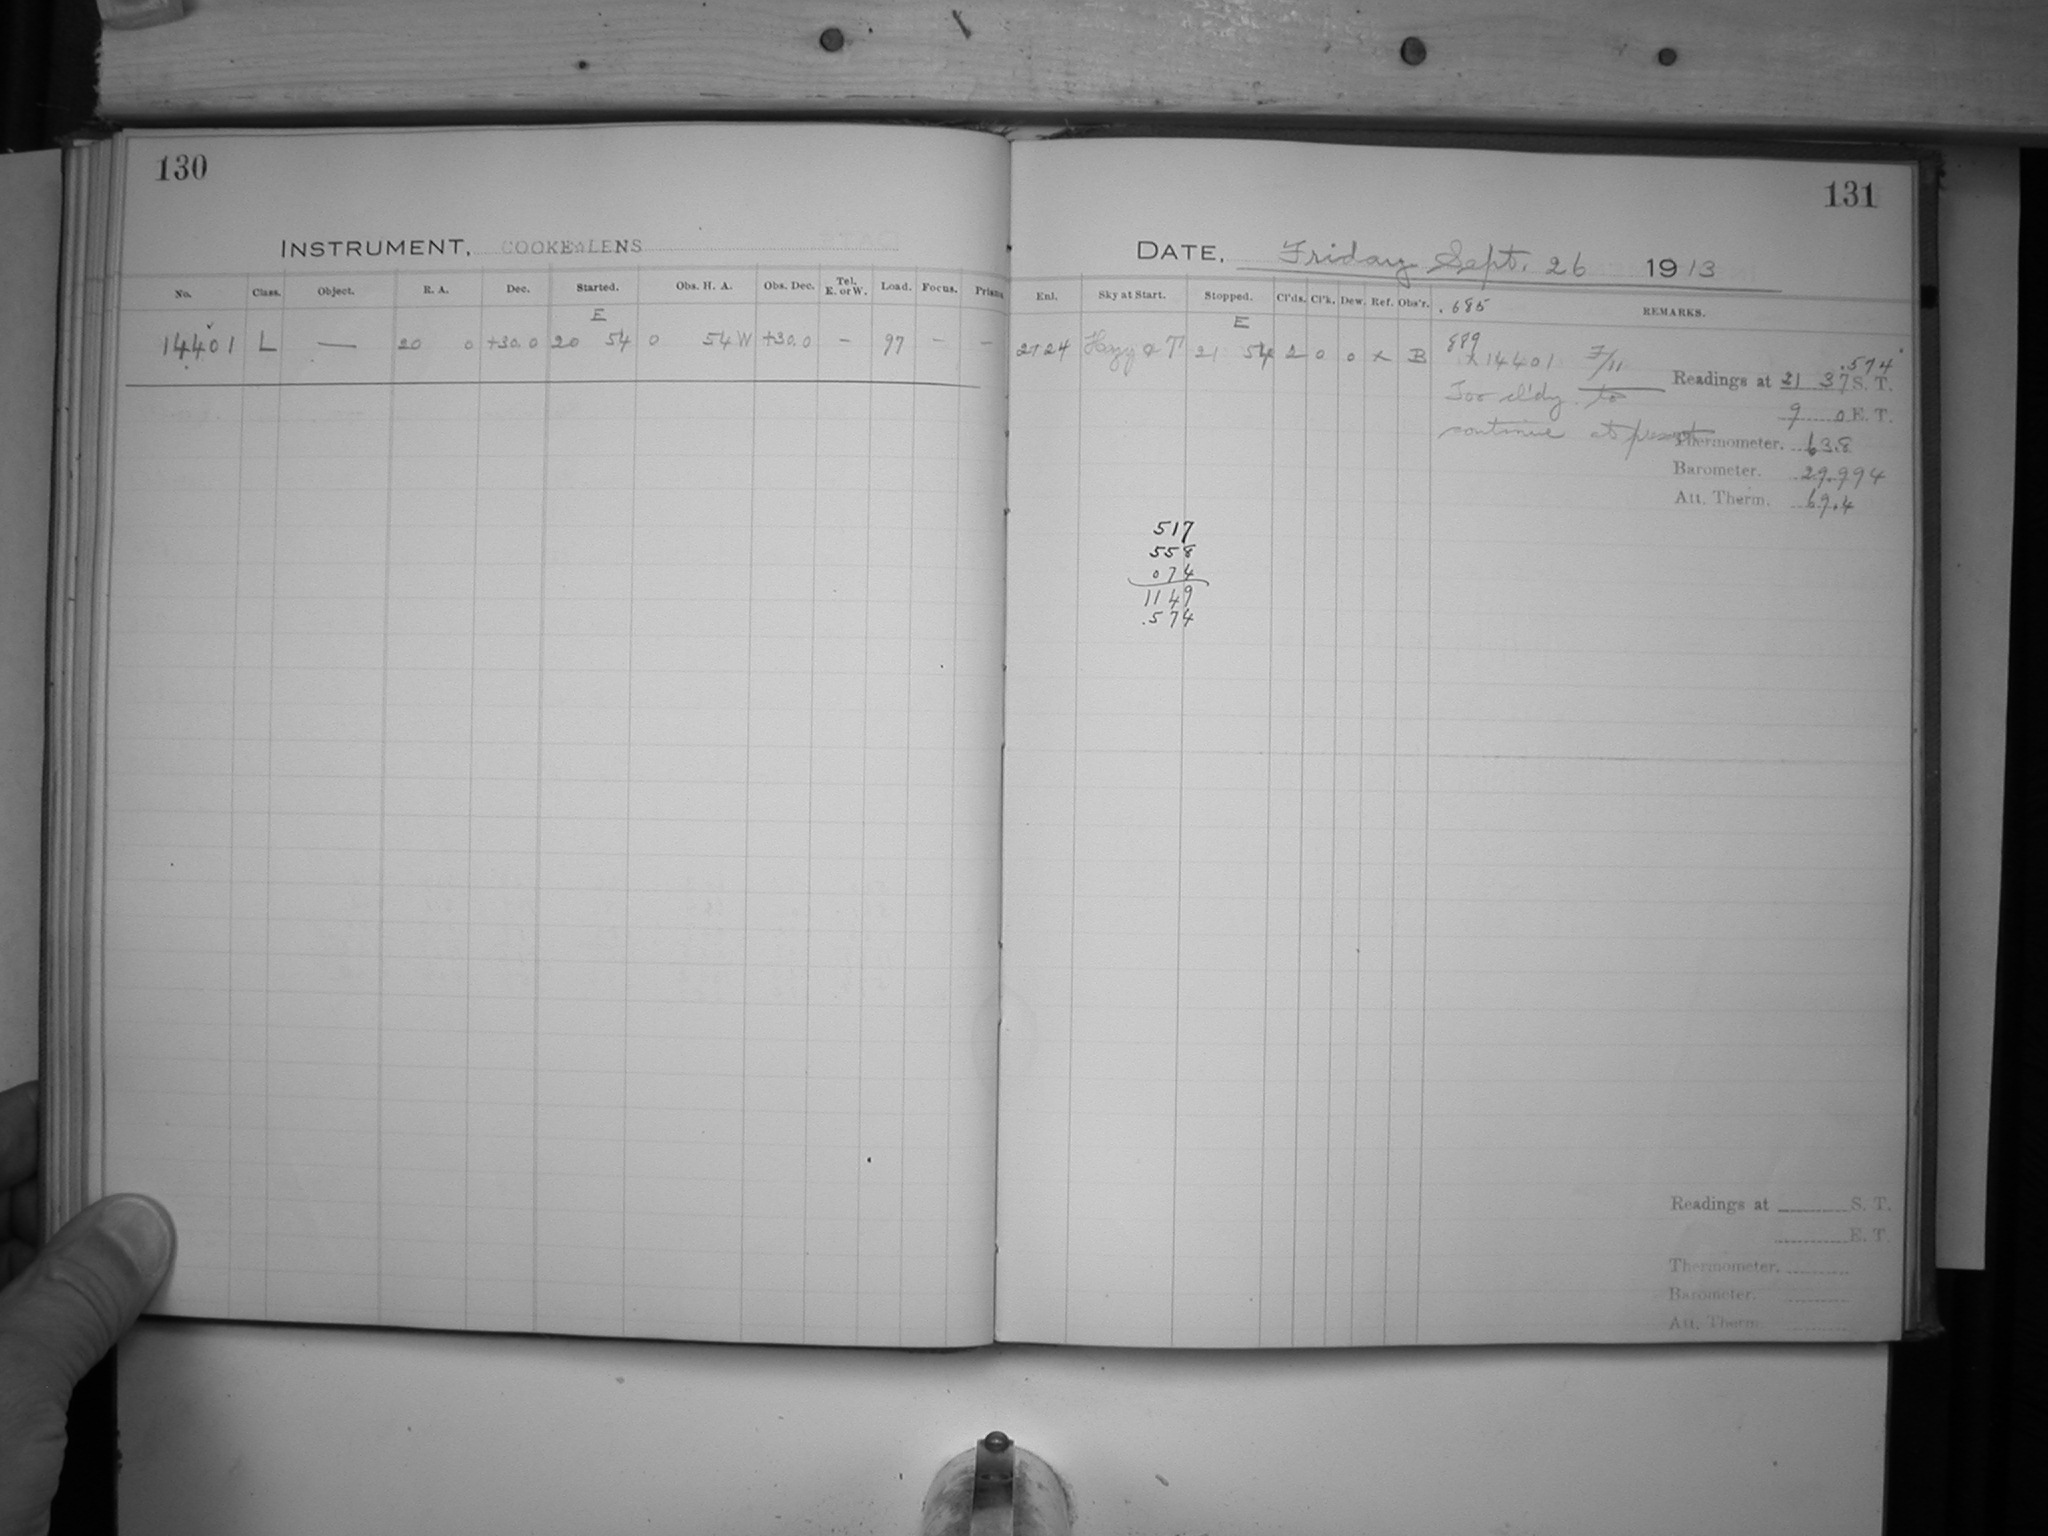 130
INSTRUMENT, COOKE LENS
No. Class. Object. R. A. Dec. Started. Obs. H. A. Obs. Dec. Tel. E. or W. Load. Focus. Prisms
E
14401 L — 20 0 +30.0 20 54 0 54 W +30.0 – 97 – –
131
DATE, Friday Sept. 26 1913
Enl. Sky at Start. Stopped. Cl'ds. Cl'k. Dew. Ref. Obs'r. .685 REMARKS.
E
2724 Hazy & T 21 54 2 0 0 x B 889
x 14401 F/11
.574
Too cl'dy to
continue at present
Readings at 21 37 S. T.
9 0 E. T.
Thermometer. 63.8
Barometer. 29.994
Att. Therm. 69.4
517
558
074
1149
.574
Readings at S. T.
E. T.
Thermometer.
Barometer.
Att. Therm.